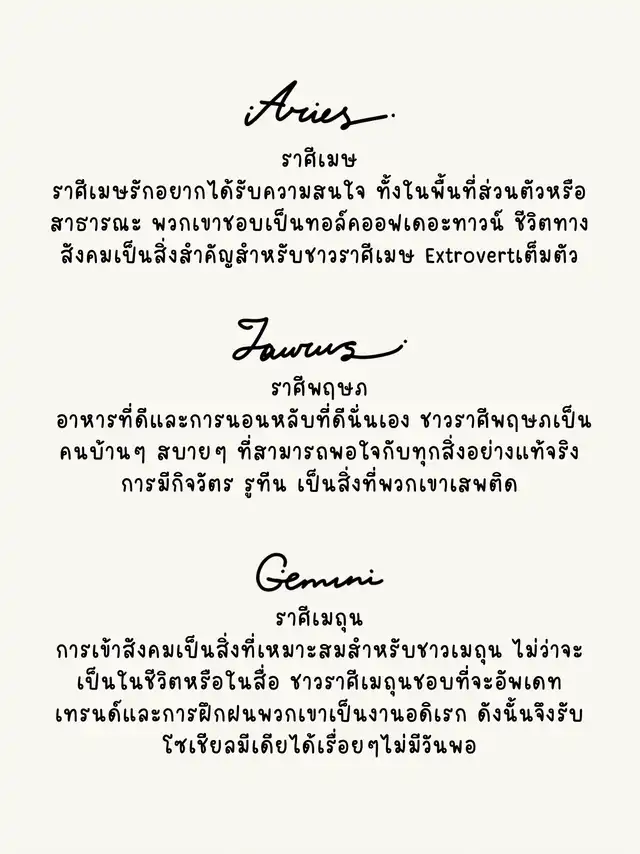 Aries
ราศีเมษ
ราศีเมษรักอยากได้รับความสนใจ ทั้งในพื้นที่ส่วนตัวหรือ
สาธารณะ พวกเขาชอบเป็นทอล์คออฟเดอะทาวน์ ชีวิตทาง
สังคมเป็นสิ่งสำคัญสำหรับชาวราศีเมษ Extrovertเต็มตัว
Taurus
ราศีพฤษภ
อาหารที่ดีและการนอนหลับที่ดีนั่นเอง ชาวราศีพฤษภเป็น
คนบ้านๆ สบายๆ ที่สามารถพอใจกับทุกสิ่งอย่างแท้จริง
การมีกิจวัตร รูทีน เป็นสิ่งที่พวกเขาเสพติด
Gemini
ราศีเมถุน
การเข้าสังคมเป็นสิ่งที่เหมาะสมสำหรับชาวเมถุน ไม่ว่าจะ
เป็นในชีวิตหรือในสื่อ ชาวราศีเมถุนชอบที่จะอัพเดท
เทรนด์และการฝึกฝนพวกเขาเป็นงานอดิเรก ดังนั้นจึงรับ
โซเชียลมีเดียได้เรื่อยๆไม่มีวันพอ